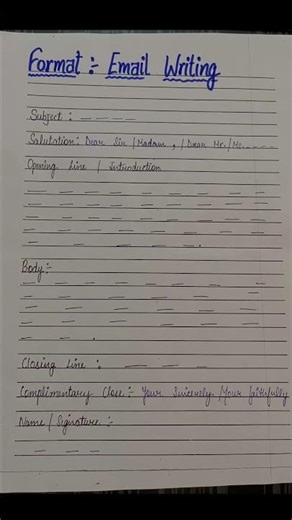 Format :- Email Writing
Subject : _ _ _ _
Salutation: Dear Sir / Madam , / Dear Mr. / Ms. _ _ _ _
Opening Line / Introduction
_ _ _ _ _ _ _ _
_ _ _ _ _ _ _ _
_ _ _ _ _ _ _ _
_ _ _ _ _ _ _ _
_ _ _ _ _ .
Body :-
_ _ _ _ _ _ _ _
_ _ _ _ _ _ _ _
_ _ _ _ _ _ _ _
_ _ _ _ _ _ _ _
_ _ .
Closing Line : _ _ _ _
Complimentary Close :- Your Sincerely / Your faithfully
Name / Signature :-
_ _ _